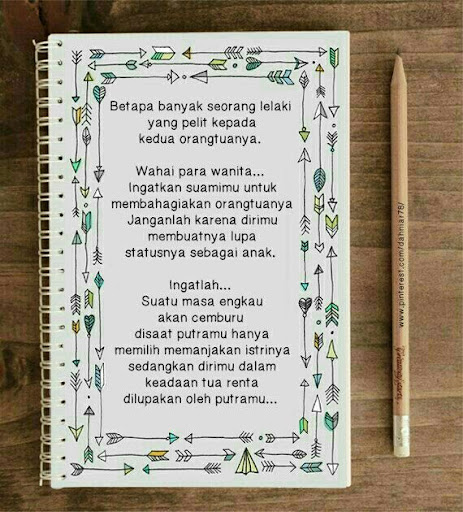 Betapa banyak seorang lelaki
yang pelit kepada
kedua orangtuanya.
Wahai para wanita...
Ingatkan suamimu untuk
membahagiakan orangtuanya
Janganlah karena dirimu
membuatnya lupa
statusnya sebagai anak.
Ingatlah...
Suatu masa engkau
akan cemburu
disaat putramu hanya
memilih memanjakan istrinya
sedangkan dirimu dalam
keadaan tua renta
dilupakan oleh putramu...
www.pinterest.com/dahniar78/